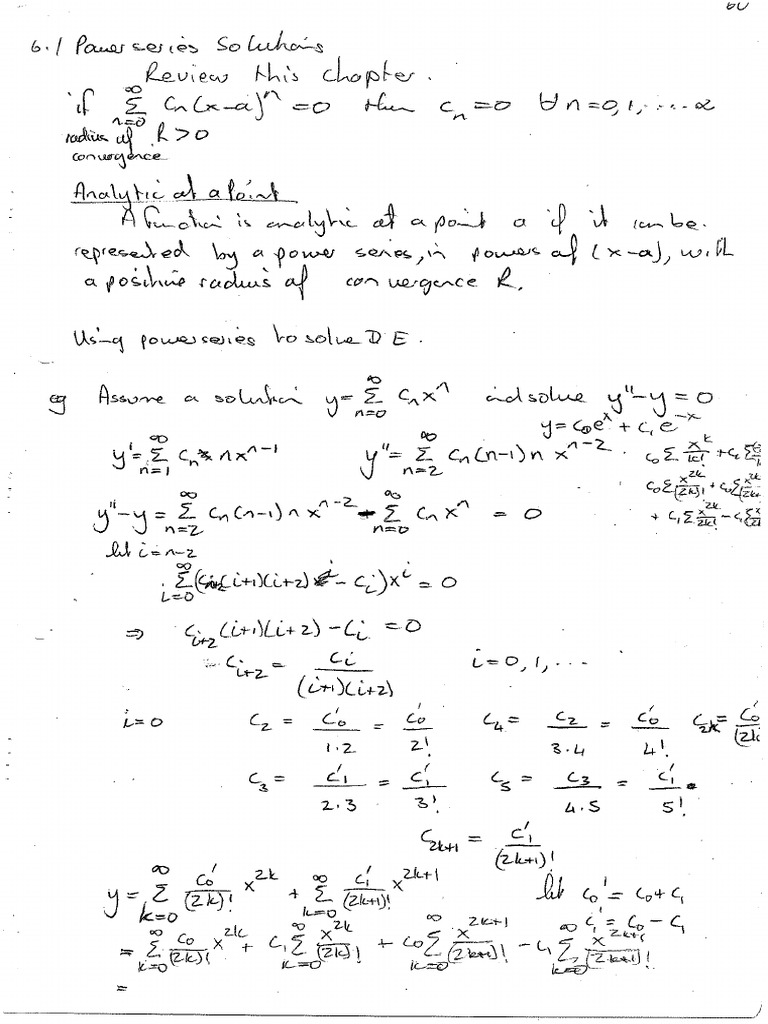 60
6.1 Power series Solutions
Review this chapter.
if ∞ Σ n=0 Cn(x-a)^n = 0 then c_n = 0 ∀ n=0,1,....∞
radius of R>0
convergence
Analytic at a Point
A function is analytic at a point a if it can be.
represented by a power series, in powers of (x-a), with
a positive radius of convergence R.
Using power series to solve D E.
eg Assume a solution y= ∞ Σ n=0 c_n x^n and solve y''-y=0
y = c_0 e^x + c_1 e^-x
y' = ∞ Σ n=1 c_n n x^n-1 y'' = ∞ Σ n=2 c_n (n-1) n x^n-2.
c_0 Σ x^k/k! + c_1 Σ
c_0 Σ x^2k/(2k)! + c_0 Σ x^2k
+ c_1 Σ x^2k/2k! - c_1 Σ x
y''-y = ∞ Σ n=2 c_n (n-1) n x^n-2 - ∞ Σ n=0 c_n x^n = 0
let i=n-2
∞ Σ i=0 (c_i+2 (i+1)(i+2) - c_i) x^i = 0
⇒ c_i+2 (i+1)(i+2) - c_i = 0
c_i+2 = c_i/(i+1)(i+2) i=0,1,...
i=0 c_2 = c_0'/1.2 = c_0'/2! c_4 = c_2/3.4 = c_0'/4! c_2k = c_0'/(2k
c_3 = c_1'/2.3 = c_1'/3! c_5 = c_3/4.5 = c_1'/5!
c_2k+1 = c_1'/(2k+1)!
y = ∞ Σ k=0 c_0'/(2k)! x^2k + ∞ Σ k=0 c_1'/(2k+1)! x^2k+1 let c_0' = c_0+c_1
c_1' = c_0 - c_1
= ∞ Σ k=0 c_0/(2k)! x^2k + c_1 ∞ Σ k=0 x^2k/(2k)! + c_0 ∞ Σ k=0 x^2k+1/(2k+1)! - c_1 ∞ Σ k=0 x^2k+1/(2k+1)!
=